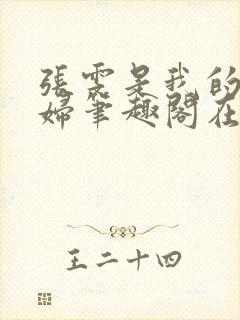 張雲是我的
婦筆趣閣在
王二十四